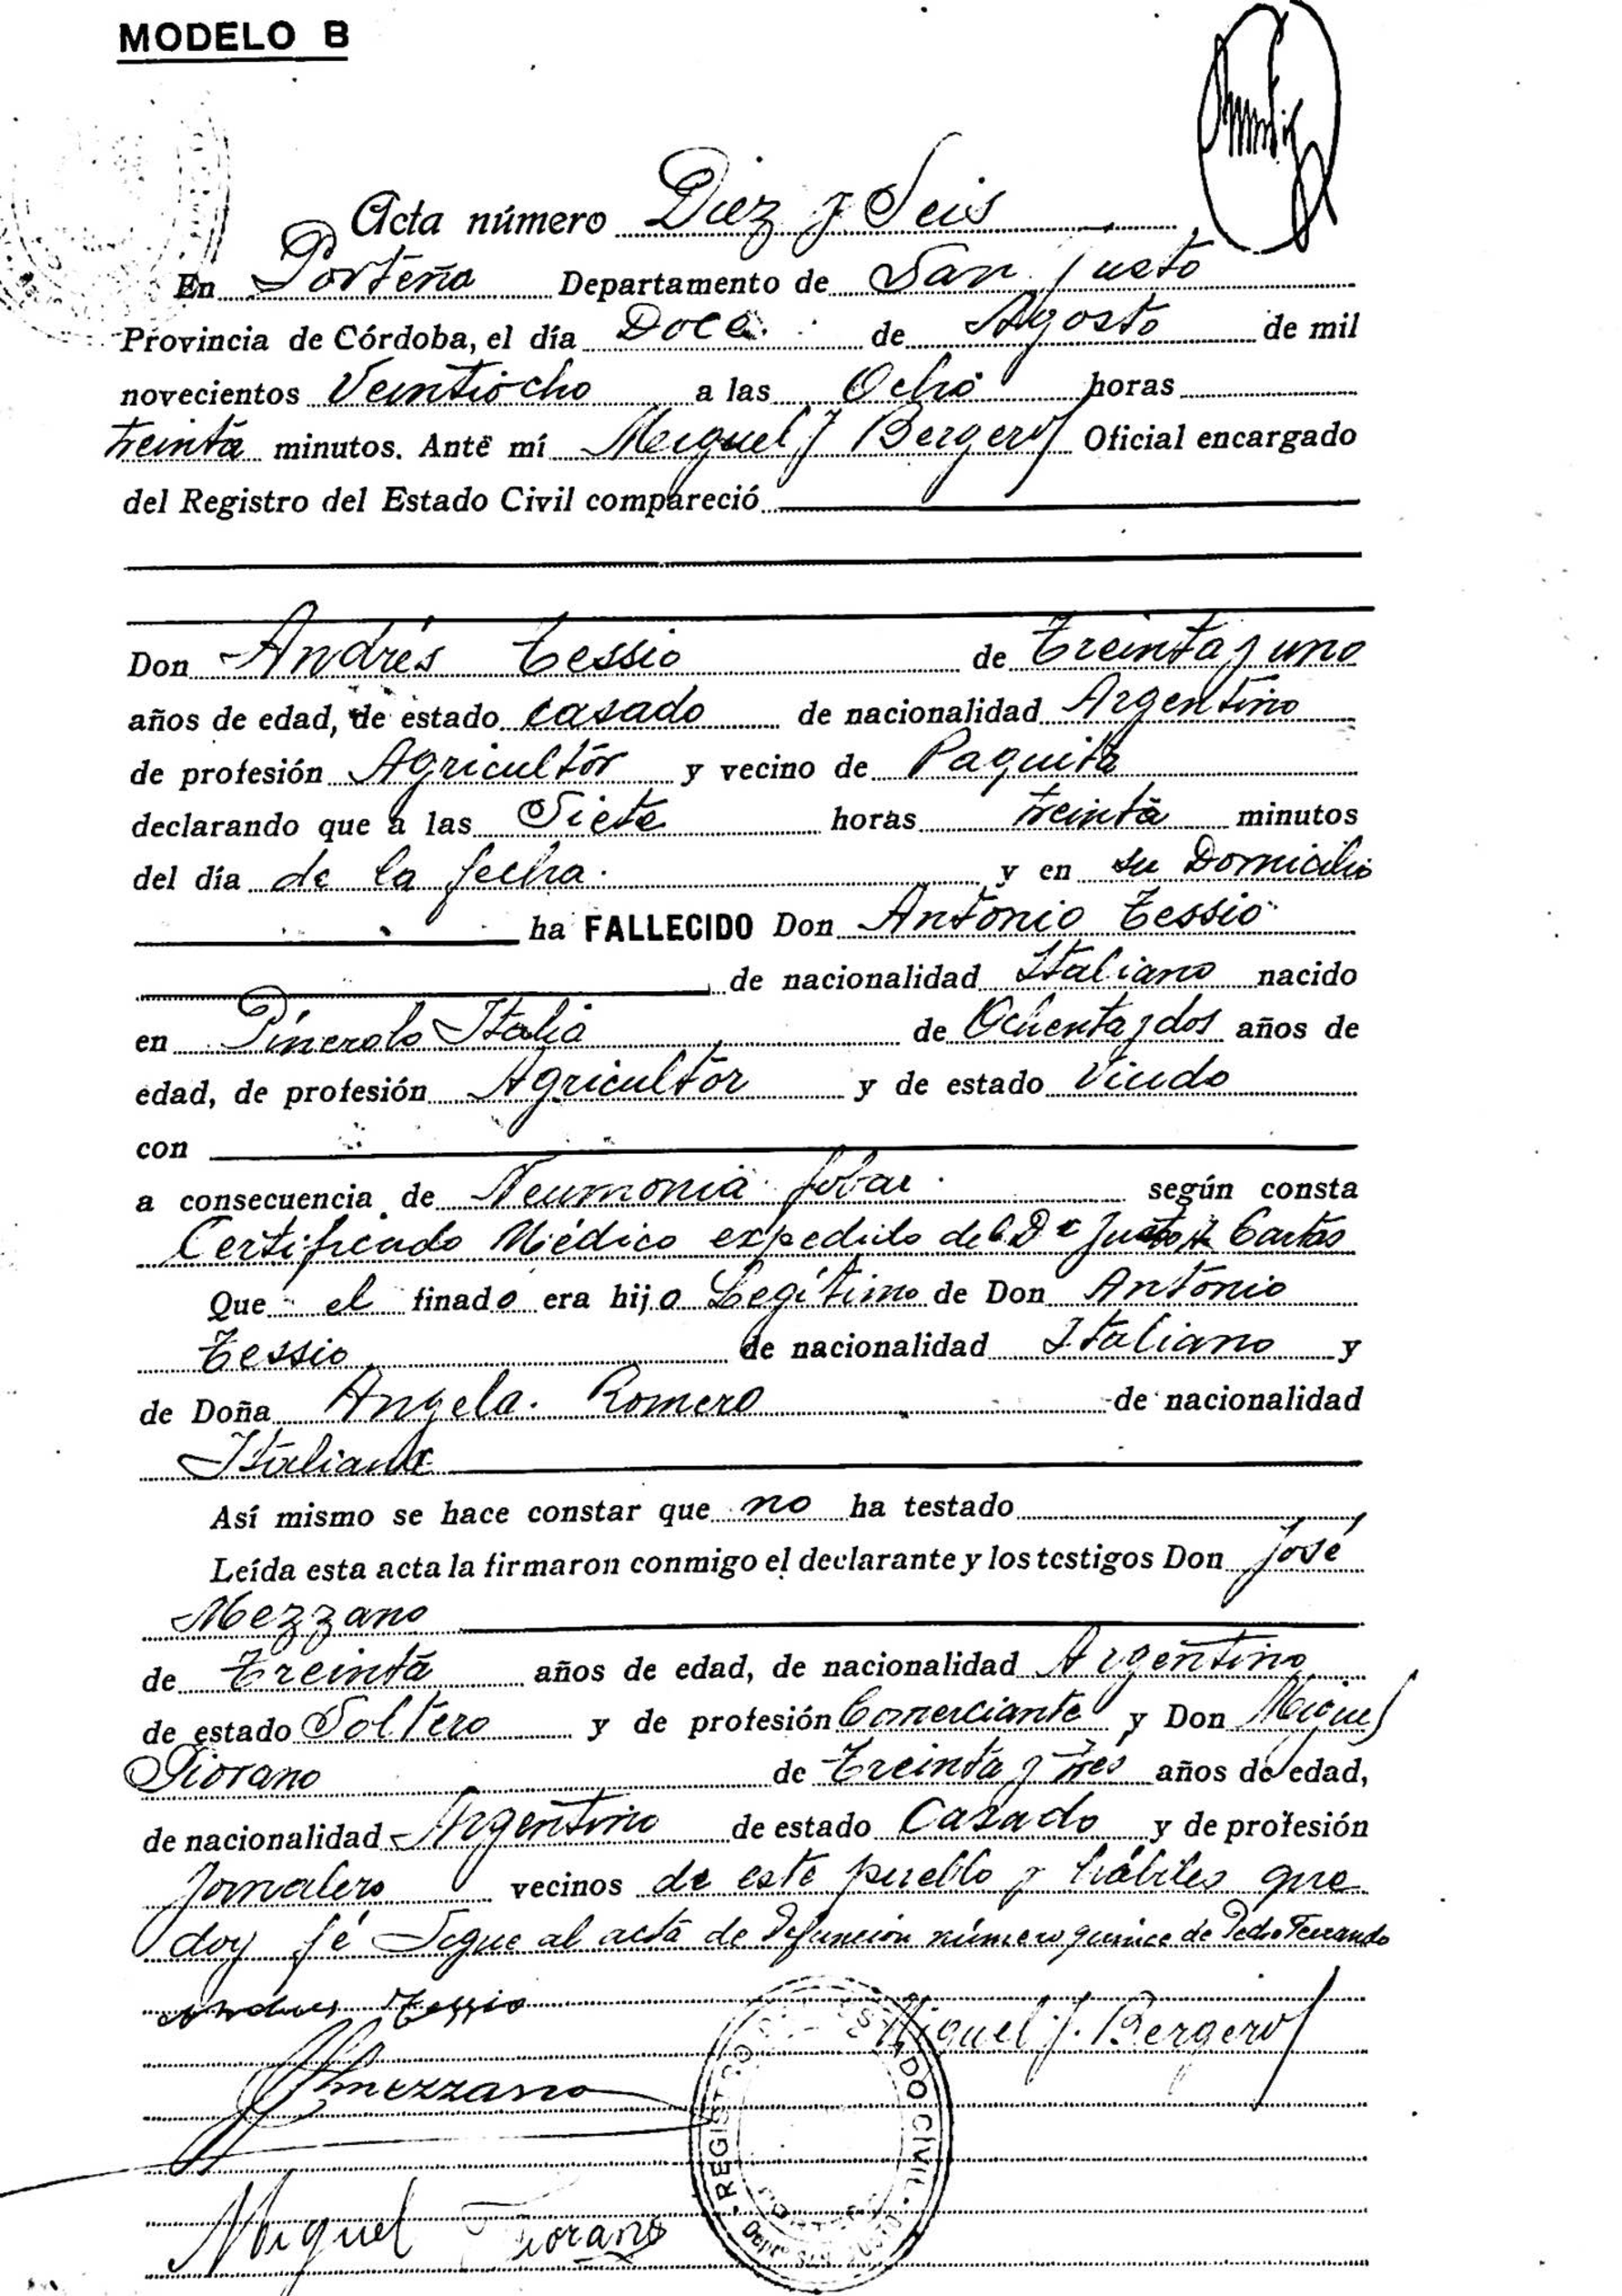 MODELO B
Acta número Diez y Seis
En Porteña Departamento de San Justo
Provincia de Córdoba, el día Doce de Agosto de mil
novecientos Veintiocho a las Ocho horas
treinta minutos. Ante mí Miguel J Bergero Oficial encargado
del Registro del Estado Civil compareció
Don Andrés Tessio de Treinta y uno
años de edad, de estado casado de nacionalidad Argentino
de profesión Agricultor y vecino de Paquita
declarando que a las Siete horas treinta minutos
del día de la fecha. y en su Domicilio
ha FALLECIDO Don Antonio Tessio
de nacionalidad Italiano nacido
en Pinerolo Italia de Ochenta y dos años de
edad, de profesión Agricultor y de estado Viudo
con
a consecuencia de Neumonia lobar. según consta
Certificado Médico expedido del Dr Justo Cartas
Que el finado era hijo Legítimo de Don Antonio
Tessio de nacionalidad Italiano y
de Doña Angela. Romero de nacionalidad
Italiana
Así mismo se hace constar que no ha testado
Leída esta acta la firmaron conmigo el declarante y los testigos Don José
Mezzano
de Treinta años de edad, de nacionalidad Argentino
de estado Soltero y de profesión Comerciante y Don Miguel
Fiorano de Treinta y tres años de edad,
de nacionalidad Argentino de estado Casado y de profesión
Jornalero vecinos de este pueblo y hábiles que
doy fé Sigue al acta de Defunción número quince de Pedro Ferrando
Andres Tessio
Miguel J. Bergero
Jmezzano
REGISTRO ESTADO CIVIL
Miguel Fiorano